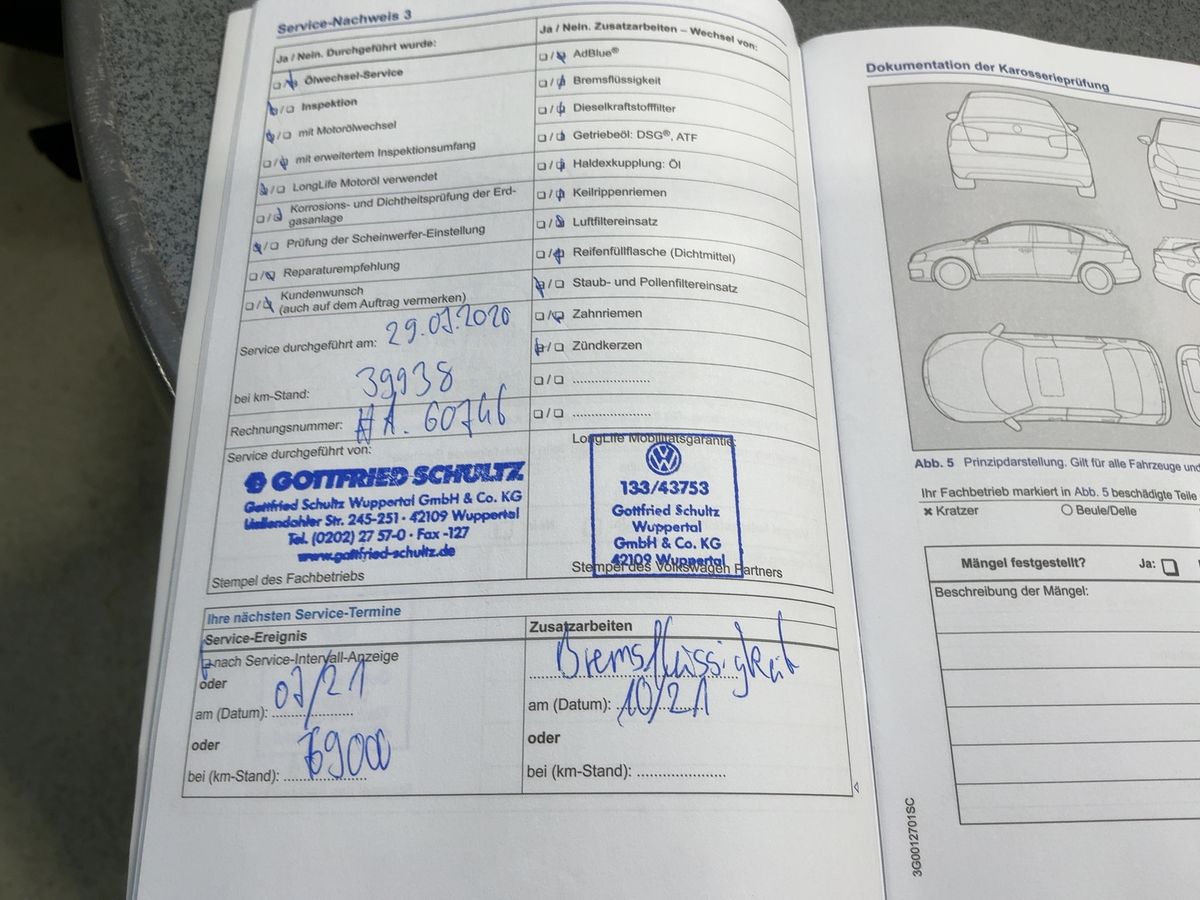 Service-Nachweis 3
Ja / Nein. Durchgeführt wurde:
Ölwechsel-Service
Inspektion
mit Motorölwechsel
mit erweitertem Inspektionsumfang
LongLife Motoröl verwendet
Korrosions- und Dichtheitsprüfung der Erd-
gasanlage
Prüfung der Scheinwerfer-Einstellung
Reparaturempfehlung
Kundenwunsch
(auch auf dem Auftrag vermerken)
Service durchgeführt am: 29.07.2020
bei km-Stand: 39938
Rechnungsnummer: HA. 60746
Service durchgeführt von:
GOTTFRIED SCHULTZ
Gottfried Schultz Wuppertal GmbH & Co. KG
Uellendahler Str. 245-251 · 42109 Wuppertal
Tel. (0202) 27 57-0 · Fax -127
www.gottfried-schultz.de
Stempel des Fachbetriebs
Ja / Nein. Zusatzarbeiten – Wechsel von:
AdBlue®
Bremsflüssigkeit
Dieselkraftstofffilter
Getriebeöl: DSG®, ATF
Haldexkupplung: Öl
Keilrippenriemen
Luftfiltereinsatz
Reifenfüllflasche (Dichtmittel)
Staub- und Pollenfiltereinsatz
Zahnriemen
Zündkerzen
LongLife Mobilitätsgarantie:
133/43753
Gottfried Schultz
Wuppertal
GmbH & Co. KG
42109 Wuppertal
Stempel des Volkswagen Partners
Ihre nächsten Service-Termine
Service-Ereignis
nach Service-Intervall-Anzeige
oder
am (Datum): 07/21
oder
bei (km-Stand): 69000
Zusatzarbeiten
Bremsflüssigkeit
am (Datum): 10/21
oder
bei (km-Stand):
Dokumentation der Karosserieprüfung
Abb. 5 Prinzipdarstellung. Gilt für alle Fahrzeuge und
Ihr Fachbetrieb markiert in Abb. 5 beschädigte Teile
Kratzer Beule/Delle
Mängel festgestellt? Ja:
Beschreibung der Mängel:
3G0012701SC